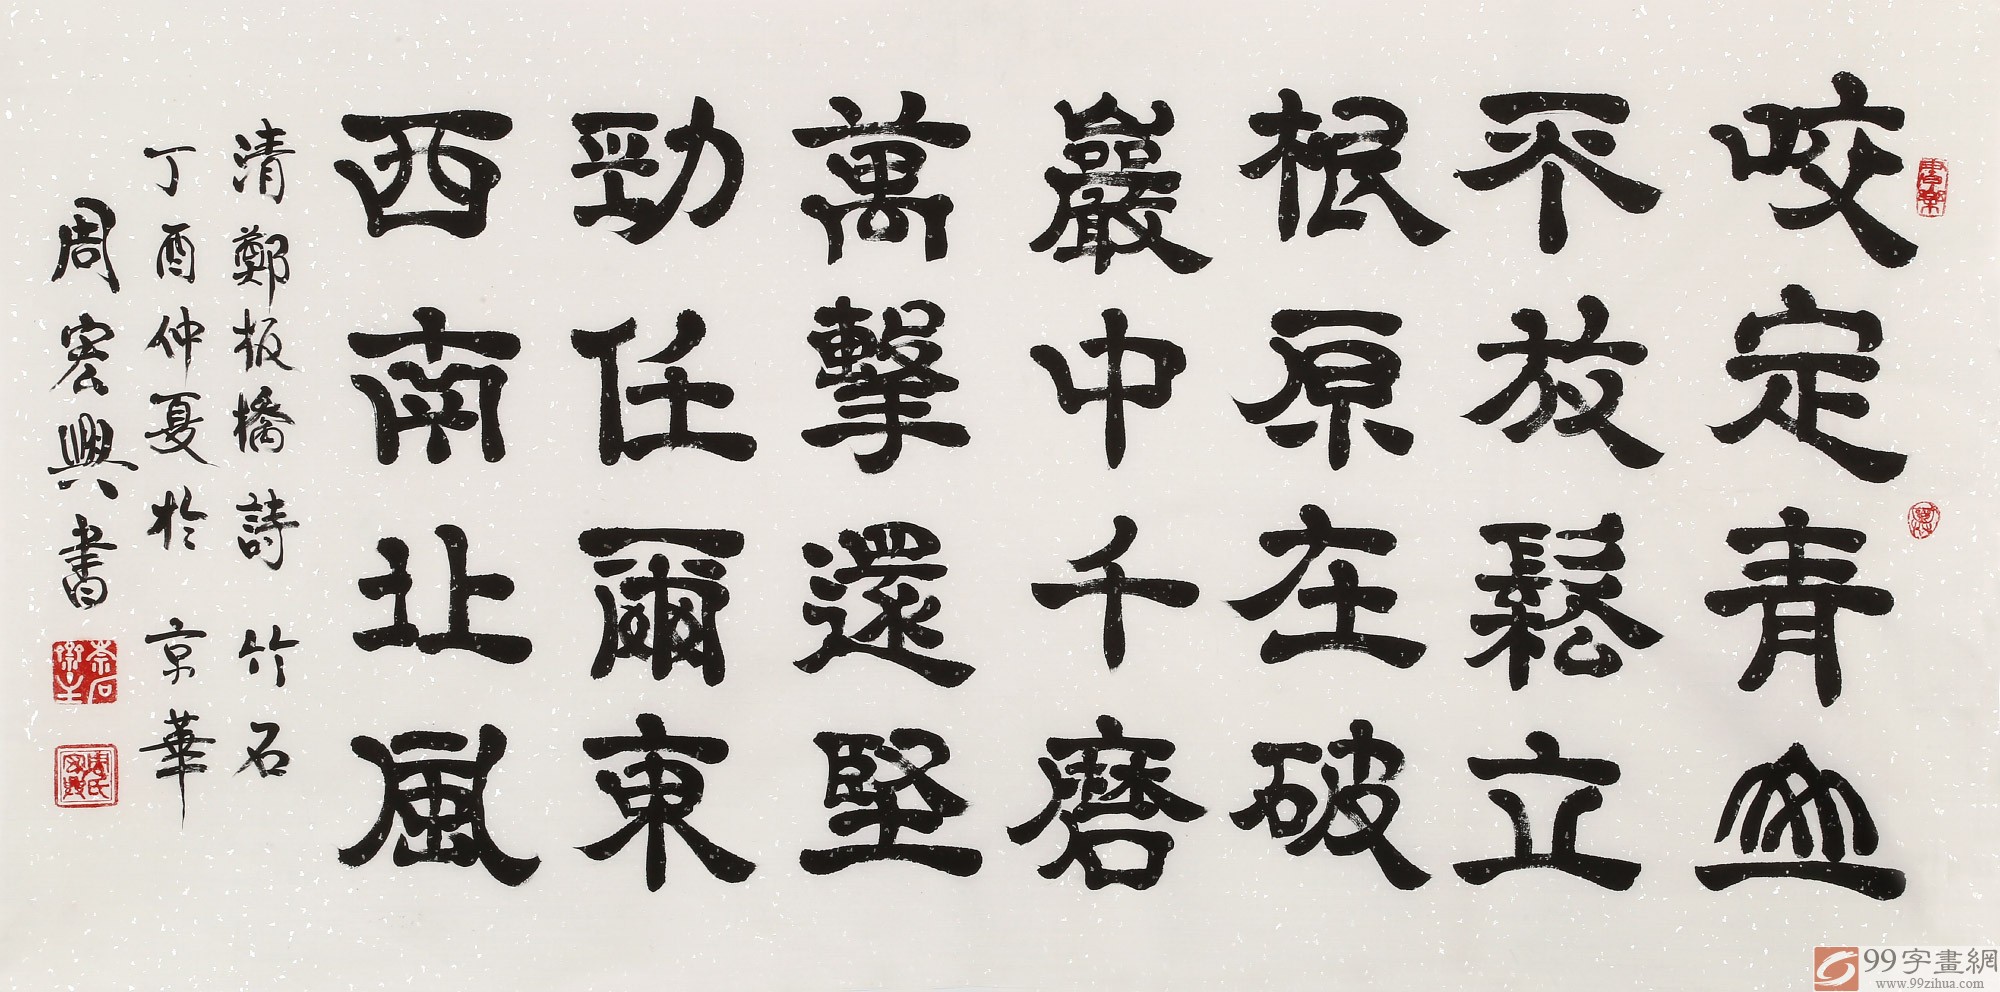 咬定青山
不放鬆立
根原在破
巖中千磨
萬擊還堅
勁任爾東
西南北風
清鄭板橋詩 竹石
丁酉仲夏於京華
周宏興書
99字畫網
www.99zihua.com